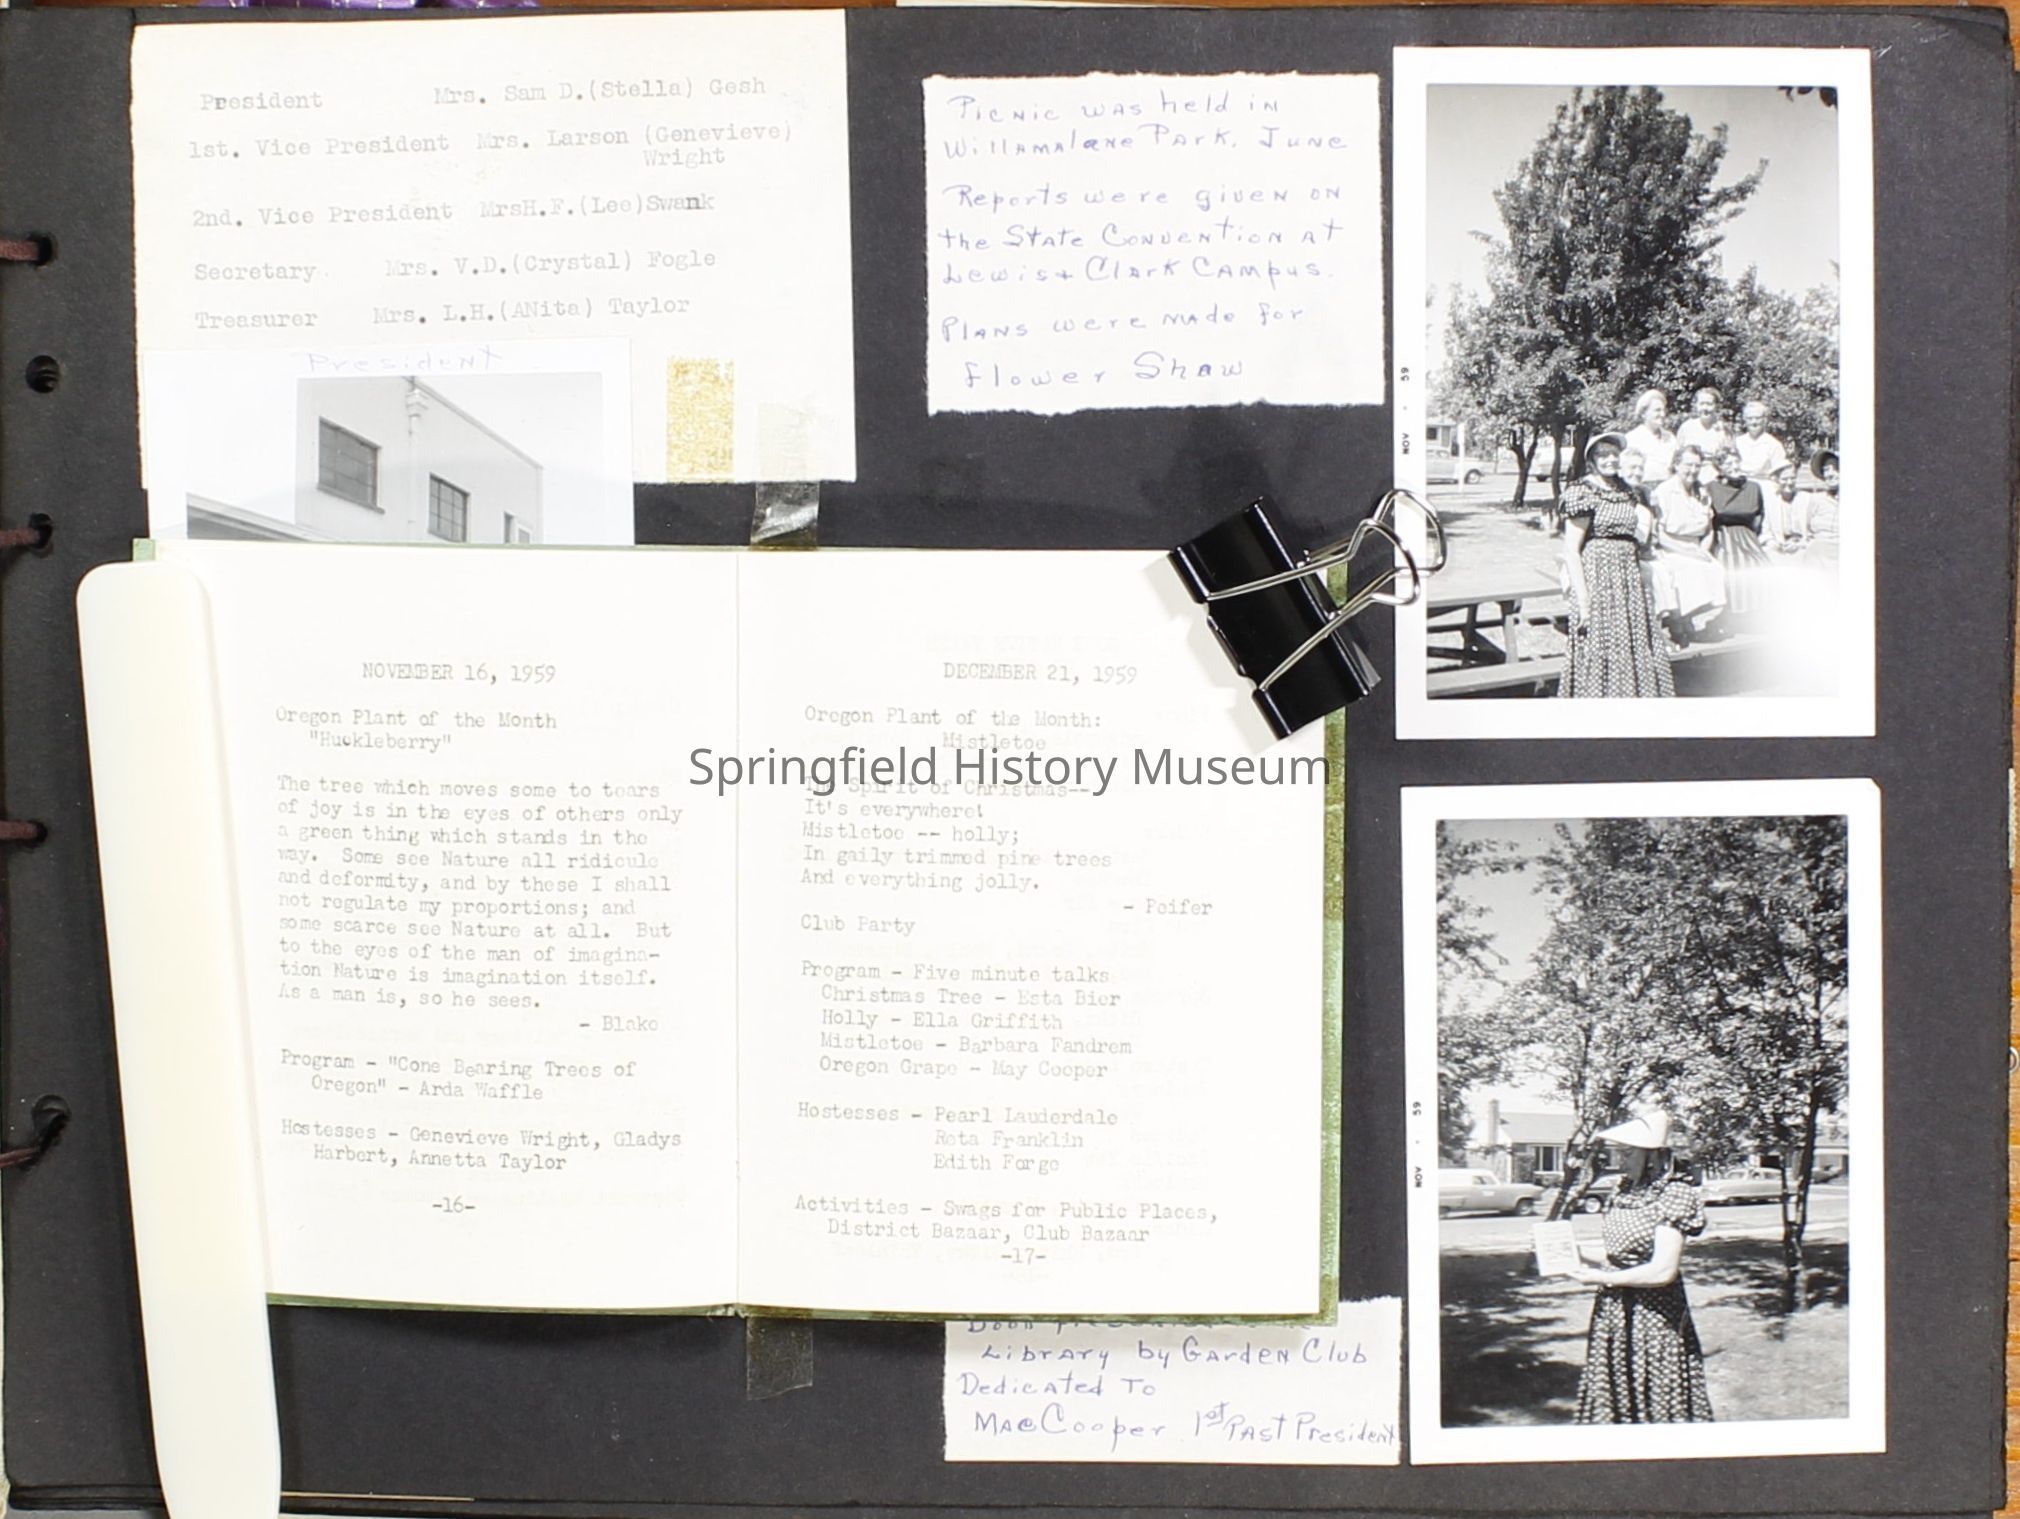 President Mrs. Sam D.(Stella) Gesh
1st. Vice President Mrs. Larson (Genevieve)
Wright
2nd. Vice President MrsH.F.(Lee)Swank
Secretary. Mrs. V.D.(Crystal) Fogle
Treasurer Mrs. L.H.(ANita) Taylor
President
Picnic was held in
Willamalane Park. June
Reports were given on
the State Convention at
Lewis + Clark Campus.
Plans were made for
flower Show
NOV • 59
NOVEMBER 16, 1959
Oregon Plant of the Month
"Huckleberry"
The tree which moves some to tears
of joy is in the eyes of others only
a green thing which stands in the
way. Some see Nature all ridicule
and deformity, and by these I shall
not regulate my proportions; and
some scarce see Nature at all. But
to the eyes of the man of imagina-
tion Nature is imagination itself.
As a man is, so he sees.
- Blake
Program - "Cone Bearing Trees of
Oregon" - Arda Waffle
Hostesses - Genevieve Wright, Gladys
Harbert, Annetta Taylor
-16-
DECEMBER 21, 1959
Oregon Plant of the Month:
Mistletoe
The Spirit of Christmas--
It's everywhere!
Mistletoe -- holly;
In gaily trimmed pine trees
And everything jolly.
- Peifer
Club Party
Program - Five minute talks
Christmas Tree - Esta Bier
Holly - Ella Griffith
Mistletoe - Barbara Fandrem
Oregon Grape - May Cooper
Hostesses - Pearl Lauderdale
Reta Franklin
Edith Forge
Activities - Swags for Public Places,
District Bazaar, Club Bazaar
-17-
Springfield History Museum
NOV • 59
Library by Garden Club
Dedicated To
Mae Cooper 1st Past President